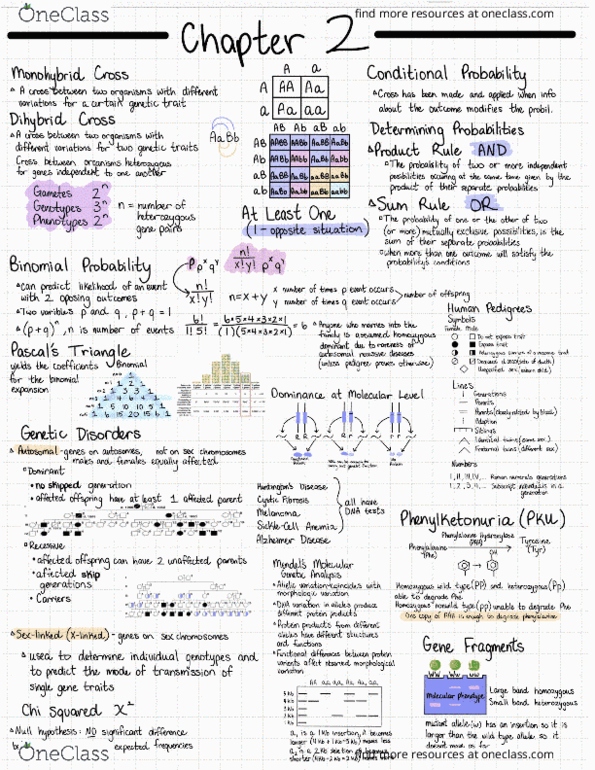 OneClass
find more resources at oneclass.com
Chapter 2
Monohybrid Cross
A cross between two organisms with different
variations for a certain genetic trait
Dihybrid Cross
A cross between two organisms with
different variations for two genetic traits
Cross between organisms heterozygous
for genes independent to one another
AaBb
Gametes 2^n
Genotypes 3^n
Phenotypes 2^n
n = number of
heterozygous
gene pairs
A a
A AA Aa
a Aa aa
AB Ab aB ab
AB AABB AABb AaBB AaBb
Ab
aB
ab
At Least One
(1 - opposite situation)
Conditional Probability
Cross has been made and applied when info
about the outcome modifies the probil.
Determining Probabilities
Product Rule AND
The probability of two or more independent
posibilities occuring at the same time given by the
product of their separate probabilities
Sum Rule OR
The probability of one or the other of two
(or more) mutually exclusive possibilities, is the
sum of their separate probabilities
when more than one outcome will satisfy the
probability's conditions
Binomial Probability
can predict likelihood of an event
with 2 opposing outcomes
Two variables p and q, p + q = 1
(p+q)^n, n is number of events
P p^x q^y
n! / x!y!
n! / x!y! p^x q^y
n = x + y
x number of times p event occurs
y number of times q event occurs
number of offspring
6! / 1! 5! = 6x5x4x3x2x1 / (1)(5x4x3x2x1) = 6
Anyone who marries into the
family is assumed homozygous
dominant due to rareness of
autosomal recessive diseases
(unless pedigree proves otherwise)
Human Pedigrees
Symbols
Female Male
Do not express trait
Express trait
Unspecified sex
Lines
Generations
Parents
Adoption
Siblings
Identical twins (same sex)
Fraternal twins (different sex)
Numbers
I, II, III, IV, ... Roman numerals generations
1, 2, 3, 4, ... Subscript individuals in a
generation
Pascal's Triangle
yields the coefficients
for the binomial
expansion
Binomial
1 2 1
1 3 3 1
1 4 6 4 1
1 5 10 10 5 1
1 6 15 20 15 6 1
Dominance at Molecular Level
Genetic Disorders
Autosomal - genes on autosomes, not on sex chromosomes
males and females equally affected
Dominant
no skipped generation
affected offspring have at least 1 affected parent
Recessive
affected offspring can have 2 unaffected parents
affected skip
generations
Carriers
Sex-linked (X-linked) - genes on sex chromosomes
used to determine individual genotypes and
to predict the mode of transmission of
single gene traits
Chi Squared X²
Null hypothesis: NO significant difference
expected frequencies
Huntington's Disease
Cystic Fibrosis
Melanoma
Sickle-Cell Anemia
Alzheimer Disease
all have
DNA tests
Mendel's Molecular
Genetic Analysis
Allelic variation coincides with
morphologic variation
DNA variation in alleles produce
different protein products
Protein products from different
alleles have different structures
and functions
Functional differences between protein
variants affect observed morphological
variation
5 kb
4 kb
3 kb
2 kb
1 kb
a₁ is a 1kb insertion, it becomes
Phenylketonuria (PKU)
Phenylalanine Hydroxylase
(PAH)
Phenylalanine
(Phe)
Tyrosine
(Tyr)
Homozygous wild type (PP) and heterozygous (Pp)
able to degrade Phe
Homozygous nonwild type (pp) unable to degrade Phe
One copy of PAH is enough to degrade phenylalanine
Gene Fragments
Molecular phenotype
Large band homozygous
Small band heterozygous
mutant allele (w) has an insertion so it is
larger than the wild type allele so it
OneClass
find more resources at oneclass.com